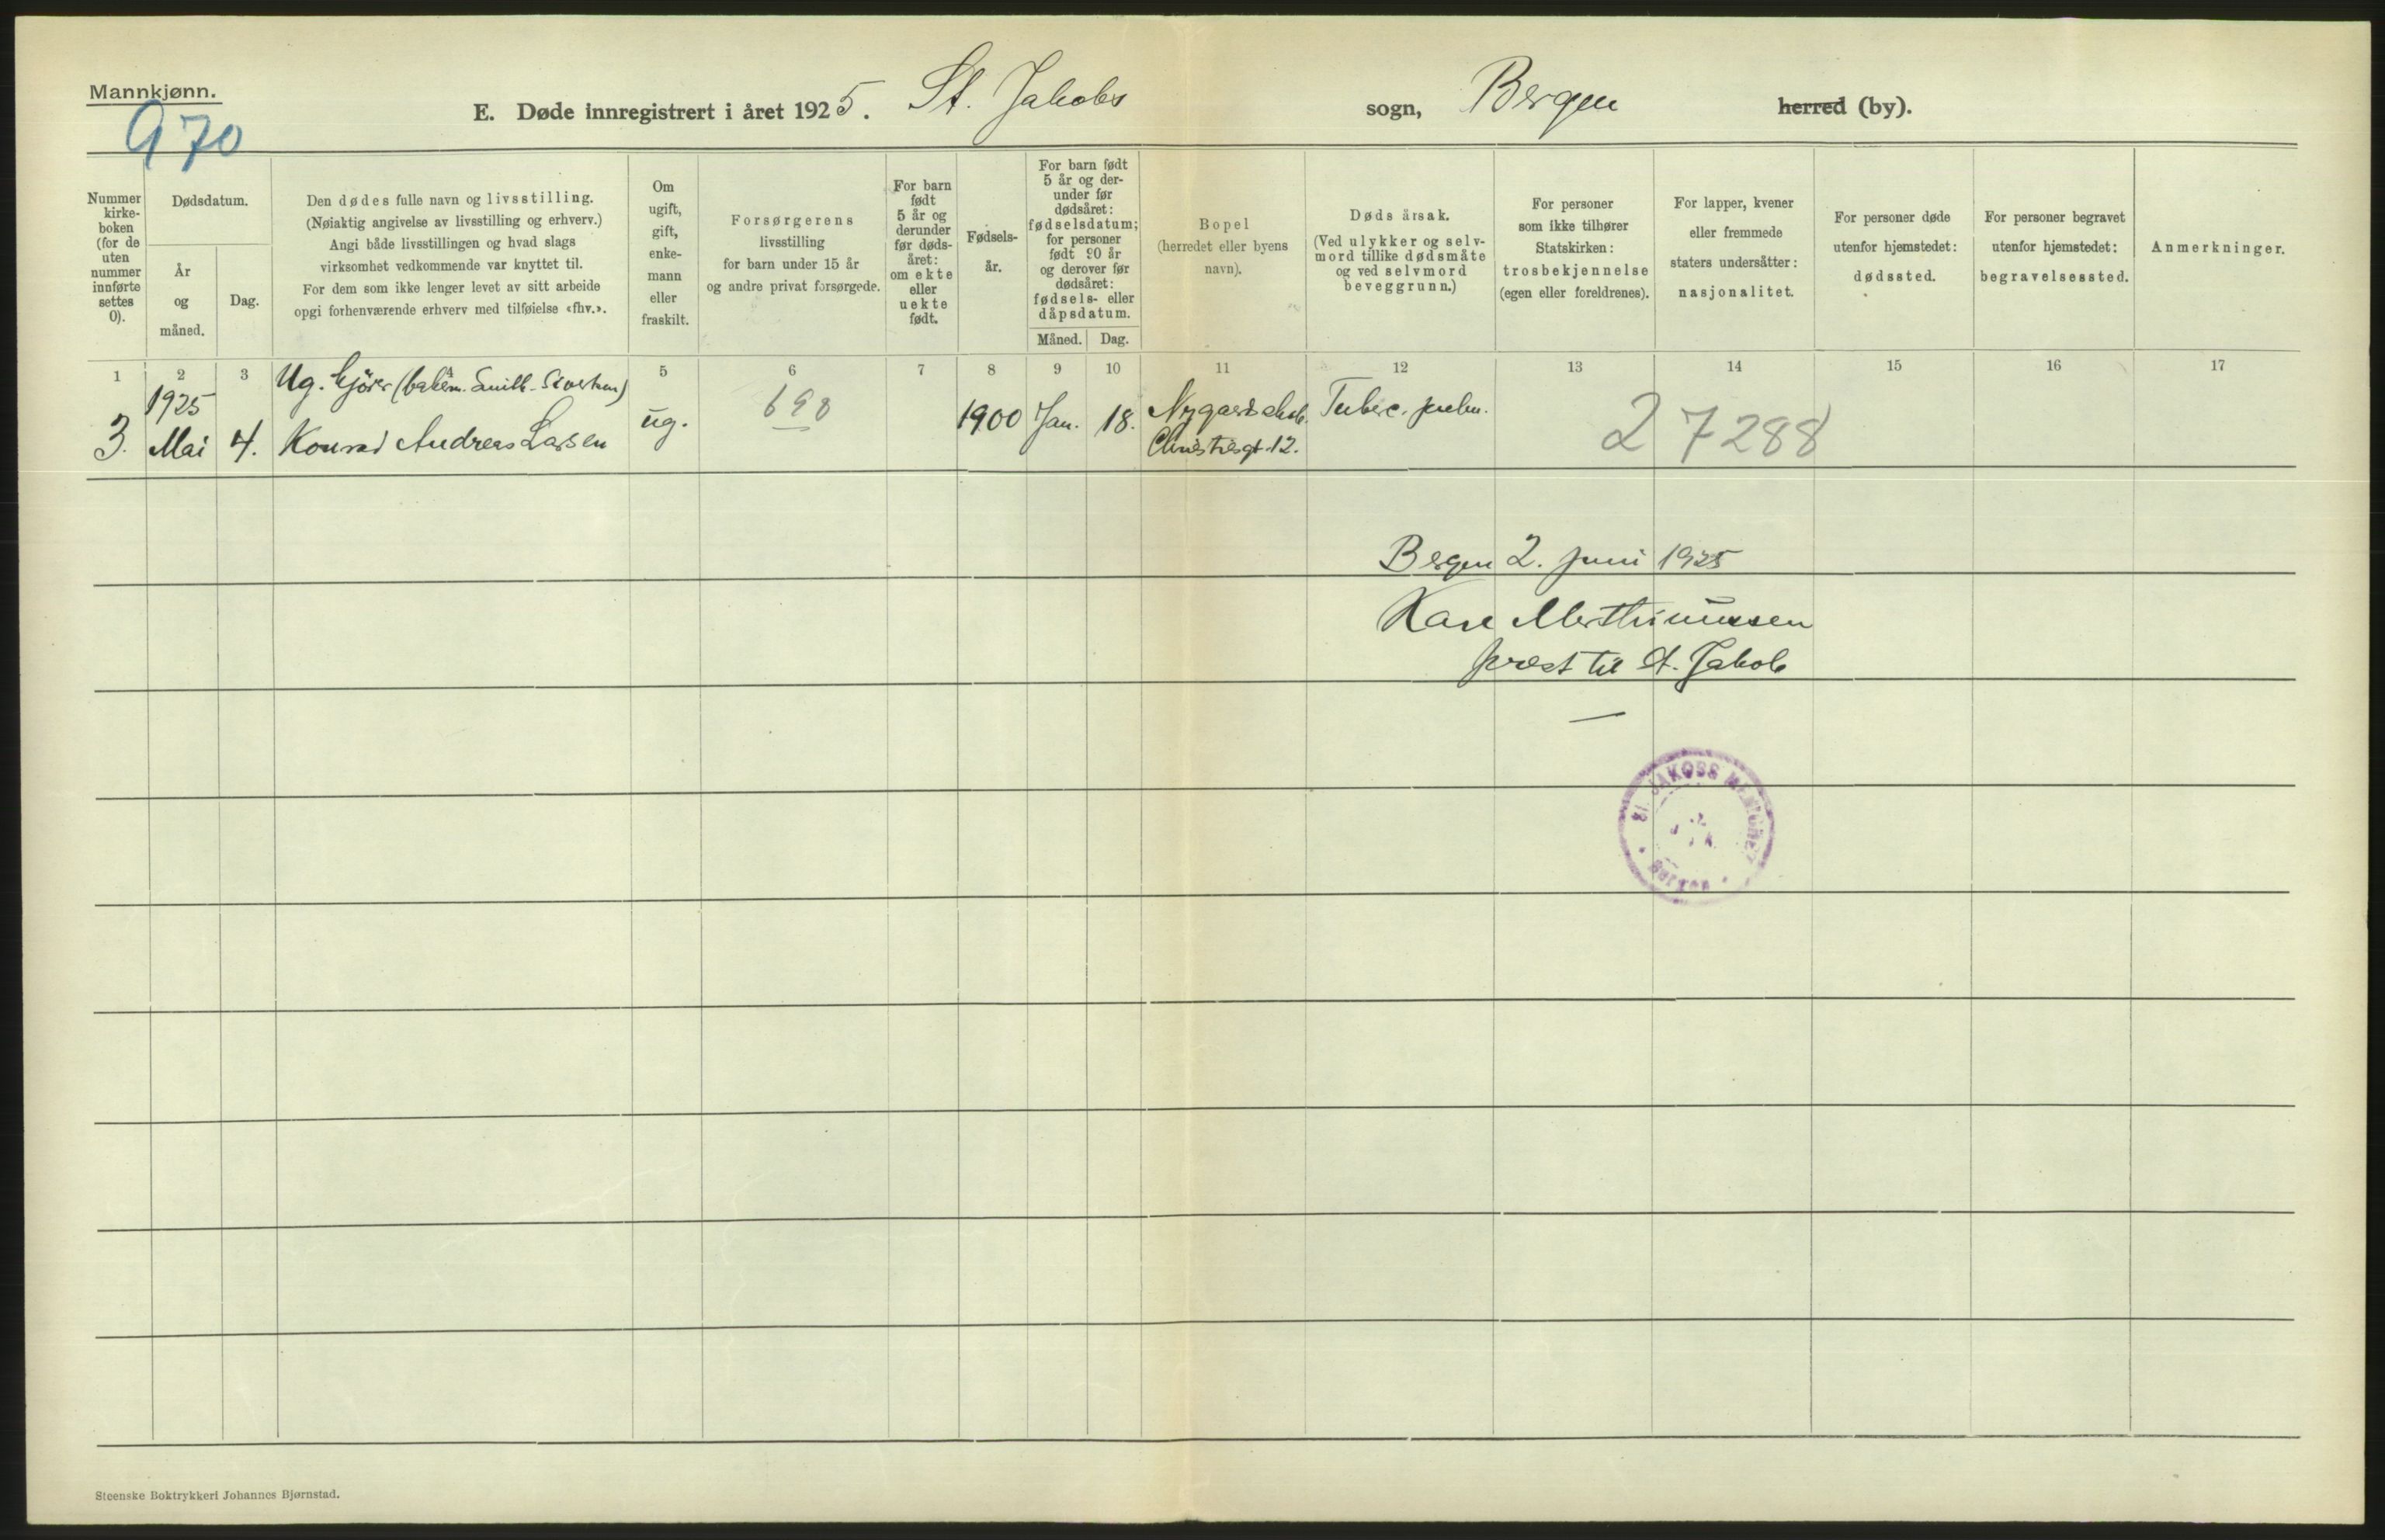 Mannkjønn.
970
E. Døde innregistrert i året 1925. St. Jakobs sogn, Bergen herred (by).
Nummer
kirke-
boken
(for de
uten
nummer
innførte
settes
0).
Dødsdatum.
År
og
måned.
Dag.
Den dødes fulle navn og livsstilling.
(Nøiaktig angivelse av livsstilling og erhverv.)
Angi både livsstillingen og hvad slags
virksomhet vedkommende var knyttet til.
For dem som ikke lenger levet av sitt arbeide
opgi forhenværende erhverv med tilføielse «fhv.».
Om
ugift,
gift,
enke-
mann
eller
fraskilt.
Forsørgerens
livsstilling
for barn under 15 år
og andre privat forsørgede.
For barn
født
5 år og
derunder
før døds-
året:
om ekte
eller
uekte
født.
Fødsels-
år.
For barn født
5 år og der-
under før
dødsåret:
fødselsdatum;
for personer
født 90 år
og derover før
dødsåret:
fødsels- eller
dåpsdatum.
Måned.
Dag.
Bopel
(herredet eller byens
navn).
Dødsårsak.
(Ved ulykker og selv-
mord tillike dødsmåte
og ved selvmord
beveggrunn.)
For personer
som ikke tilhører
Statskirken:
trosbekjennelse
(egen eller foreldrenes).
For lapper, kvener
eller fremmede
staters undersåtter:
nasjonalitet.
For personer døde
utenfor hjemstedet:
dødssted.
For personer begravet
utenfor hjemstedet:
begravelsessted.
Anmerkninger.
1 2 3 5 6 7 8 9 10 11 12 13 14 15 16 17
Ug. kjører
1925
3. Mai 4. Konrad Andreas Larsen ug. 698 1900 Jan. 18. Tuberc. pulm.
Christiesgt. 12.
27288
Bergen 2. juni 1925
prest til St. Jakob
St. JAKOBS MENIGHET
Bergen
Steenske Boktrykkeri Johannes Bjørnstad.